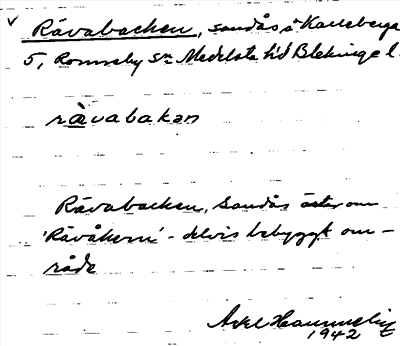 v Rävabacken, sandås å Karleberga
5, Romseby sn Medelsta hd Blekinge l.
rävabakan
Rävabacken, Sandås öster om
'Rävåkern' - delvis bebyggt om-
råde
Axel
1942